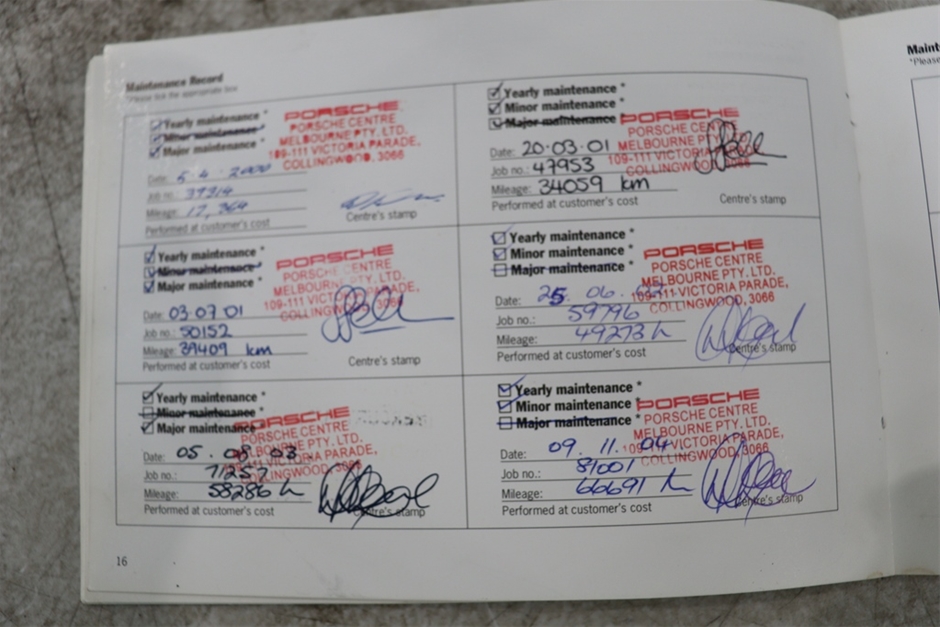 Maintenance Record
*Please tick the appropriate box
Yearly maintenance *
Minor maintenance *
Major maintenance *
Date: 5.4.2000
Job no.: 39314
Mileage: 17,364
Performed at customer's cost
PORSCHE
PORSCHE CENTRE
MELBOURNE PTY. LTD.
109-111 VICTORIA PARADE,
COLLINGWOOD, 3066
Centre's stamp
Yearly maintenance *
Minor maintenance *
Major maintenance *
Date: 20.03.01
Job no.: 47953
Mileage: 34059 km
Performed at customer's cost
PORSCHE
PORSCHE CENTRE
MELBOURNE PTY. LTD.
109-111 VICTORIA PARADE,
COLLINGWOOD, 3066
Centre's stamp
Yearly maintenance *
Minor maintenance *
Major maintenance *
Date: 03.07.01
Job no.: 50152
Mileage: 39409 km
Performed at customer's cost
PORSCHE
PORSCHE CENTRE
MELBOURNE PTY. LTD.
109-111 VICTORIA PARADE,
COLLINGWOOD, 3066
Centre's stamp
Yearly maintenance *
Minor maintenance *
Major maintenance *
Date: 25.06.
Job no.: 59796
Mileage: 49273
Performed at customer's cost
PORSCHE
PORSCHE CENTRE
MELBOURNE PTY. LTD.
109-111 VICTORIA PARADE,
COLLINGWOOD, 3066
Centre's stamp
Yearly maintenance *
Minor maintenance *
Major maintenance *
Date: 05.08.03
Job no.: 71257
Mileage: 58286
Performed at customer's cost
PORSCHE
PORSCHE CENTRE
MELBOURNE PTY. LTD.
VICTORIA PARADE,
COLLINGWOOD, 3066
Centre's stamp
Yearly maintenance *
Minor maintenance *
Major maintenance *
Date: 09.11.04
Job no.: 81001
Mileage: 66691
Performed at customer's cost
PORSCHE
PORSCHE CENTRE
MELBOURNE PTY. LTD.
109-111 VICTORIA PARADE,
COLLINGWOOD, 3066
Centre's stamp
16
Maint
*Please